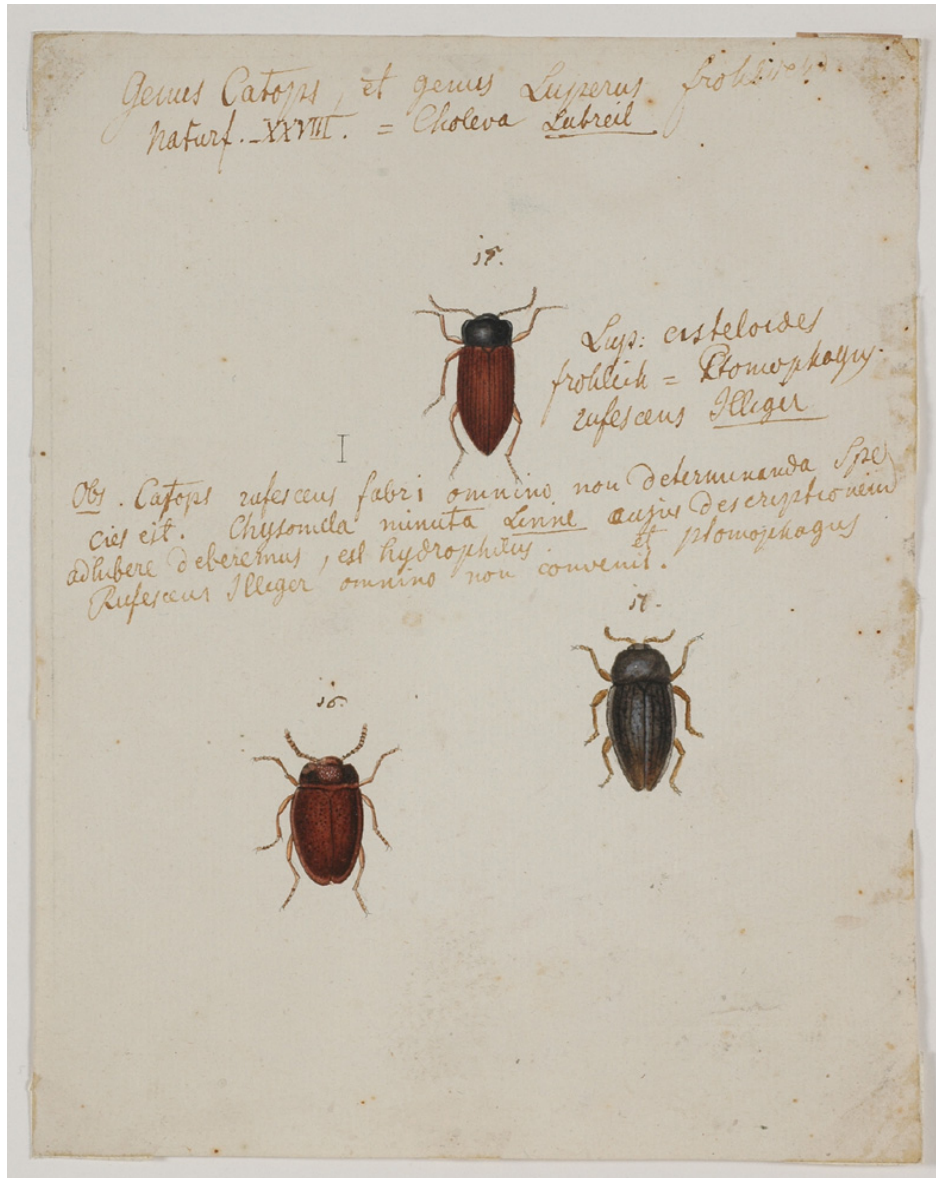 Genus Catops, et genus Luperus frohlich
Naturf. XXVIII. = Choleva Latreil
15.
Lup: cisteloides
frohlich = Ptomophagus
rufescens Illiger
I
Obs. Catops rufescens fabri omnino non determinanda Spe
cies est. Chrysomela minuta Linne cujus descriptionem
adhibere deberemus, est hydrophilus. et ptomophagus
Rufescens Illiger omnino non convenit.
17.
16.